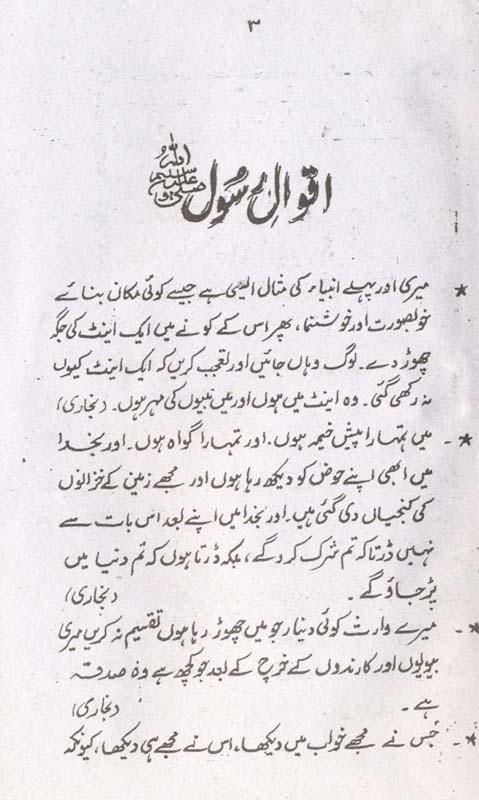 ۳
اقوالِ رسُول صلی اللہ علیہ وسلم
★ میری اور پہلے انبیاء کی مثال ایسی ہے جیسے کوئی مکان بنائے
خوبصورت اور خوشنما، پھر اس کے کونے میں ایک اینٹ کی جگہ
چھوڑ دے۔ لوگ وہاں جائیں اور تعجب کریں کہ ایک اینٹ کیوں
نہ رکھی گئی۔ وہ اینٹ میں ہوں اور میں نبیوں کی مہر ہوں۔ (بخاری)
★- میں تمہارا پیش خیمہ ہوں۔ اور تمہارا گواہ ہوں۔ اور بخدا
میں ابھی اپنے حوض کو دیکھ رہا ہوں اور مجھے زمین کے خزانوں
کی کنجیاں دی گئی ہیں۔ اور بخدا میں اپنے بعد اس بات سے
نہیں ڈرتا کہ تم شرک کرو گے، بلکہ ڈرتا ہوں کہ تم دنیا میں
پڑ جاؤ گے۔ (بخاری)
★- میرے وارث کوئی دینار جو میں چھوڑ رہا ہوں تقسیم نہ کریں میری
بیویوں اور کارندوں کے خرچ کے بعد جو کچھ ہے وہ صدقہ
ہے۔ (بخاری)
★- جس نے مجھے خواب میں دیکھا، اس نے مجھے ہی دیکھا، کیونکہ